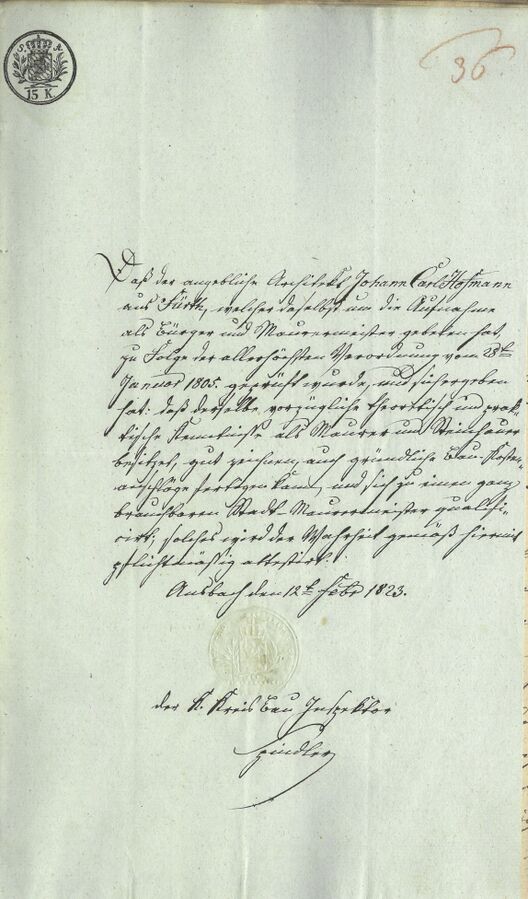 15 K.
36
Daß der angebliche Architekt Johann Carl Hofmann
aus Fürth, welcher daselbst um die Aufnahme
als Bürger und Maurermeister gebeten hat,
zu Folge der allerhöchsten Verordnung vom
Januar 1805. geprüft wurde, und sich ergeben
hat: daß derselbe vorzügliche theoretisch und prak-
tische Kenntnisse als Maurer und Steinhauer
besitzet, gut zeichnen, auch gründliche Bau-Kosten-
anschläge fertigen kann, und sich zu einen ganz
brauchbaren Stadt-Maurermeister qualifi-
cirt; solches wird der Wahrheit gemäß hiermit
pflichtmäßig attestirt.
Ansbach den 12ten Febr 1823.
der K. Kreis Bau Inspektor
Spindler